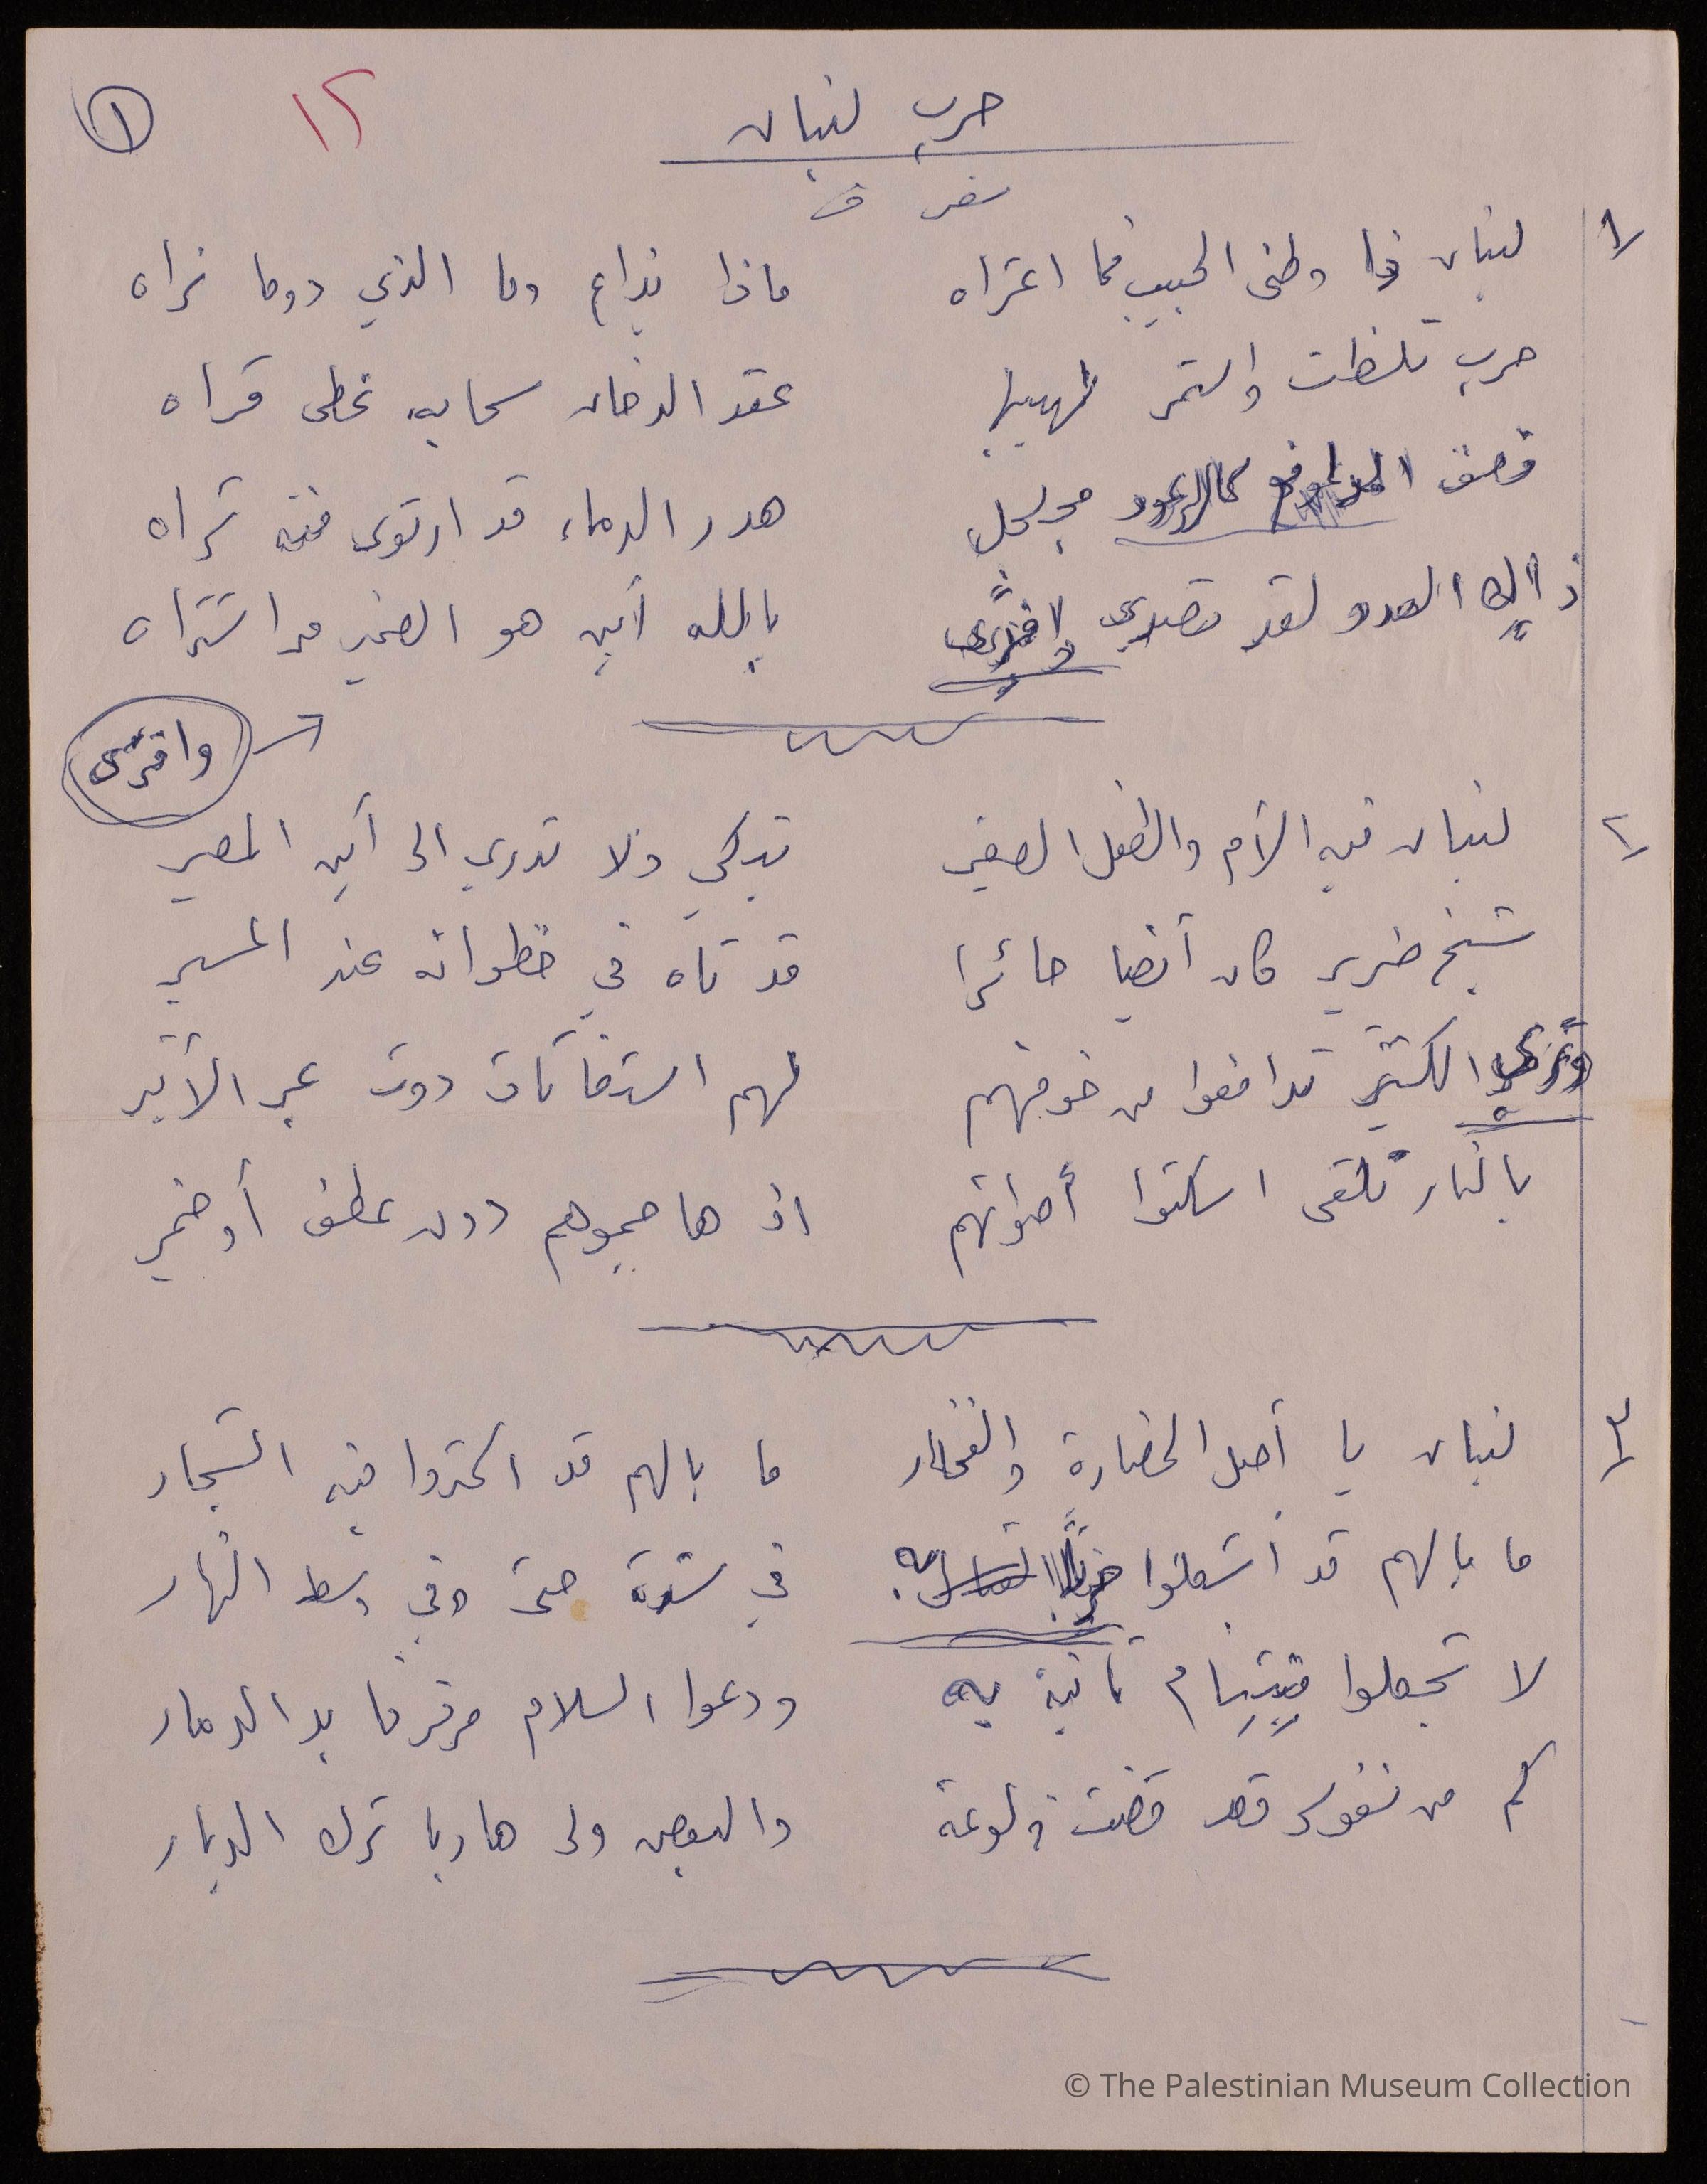 حرب لبنان
١٢
١
١
لبنان يا وطني الحبيب فما اعتراه ماذا يذاع وما الذي دوما نراه
حرب تلظت واستمر لهيبها عقد الدخان سحابه غطى قراه
قصف المدافع كالرعود مجلجل هدر الدماء قد ارتوى منه ثراه
ذاك العدو لقد تصدى وافترى بالله أين هو الضمير من اشتراه
وافترى
٢
لبنان فيه الأم والطفل الصغير تبكي ولا تدري الى أين المصير
شيخ ضرير كان أيضا حائرا قد تاه في خطواته عند المسير
وترى الكثير تدافعوا من خوفهم لهم استغاثات دوت عبر الأثير
بالنار تلقى اسكتوا أصواتهم اذ هاجموهم دون عطف أو ضمير
٣
لبنان يا أصل الحضارة والفخار ما بالهم قد اكثروا فيه الشجار
ما بالهم قد أشعلوا حربا به في شدة حتى وفي وسط النهار
لا تجعلوا فيتنام ثانية به ودعوا السلام مرفرفا بدل الدمار
كم من نفوس قد قضت ولوعة والبعض ولى هاربا ترك الديار
© The Palestinian Museum Collection